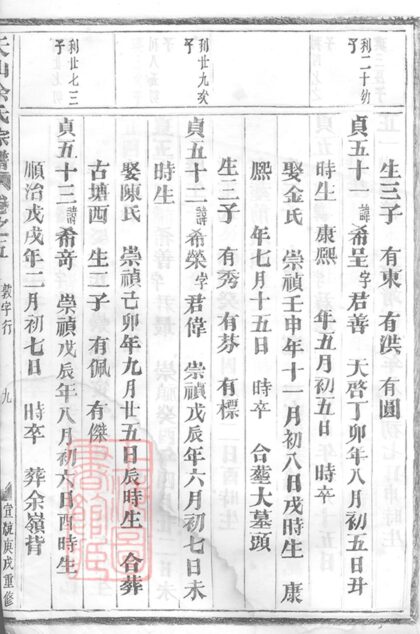 生三子 有東 有洪 有圓
利二十幼子
貞五十一 諱希呈 字君善 天啓丁卯年八月初五日丑
時生 康熙 年五月初五日 時卒
娶金氏 崇禎壬申年十一月初八日戌時生 康
熙 年七月十五日 時卒 合塟大墓頭
生三子 有秀 有芬 有標
利廿九次子
貞五十二 諱希榮 字君偉 崇禎戊辰年六月初七日未
時生
娶陳氏 崇禎己卯年九月廿五日辰時生 合葬
古塘西 生二子 有佩 有傑
利廿七三子
貞五十三 諱希奇 崇禎戊辰年八月初六日酉時生
順治戊戌年二月初七日 時卒 葬余嶺背
余氏宗譜 卷之五 教字行 九 宣統庚戌重修